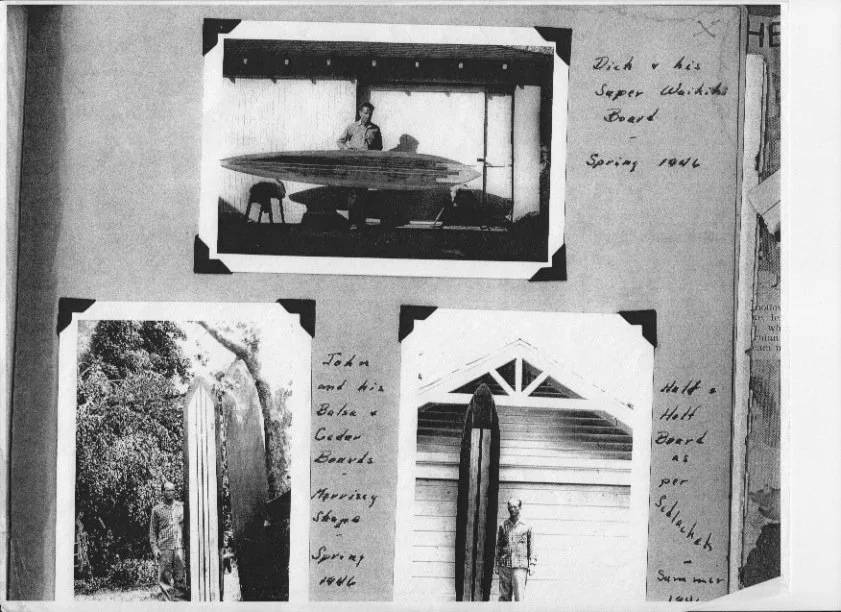 HE
Dick & his
Super Waikiki
Board
-
Spring 1946
John
and his
Balsa &
Cedar
Boards
-
Morrisey
Shape
-
Spring
1946
Half &
Half
Board
as
per
-
Summer
1946